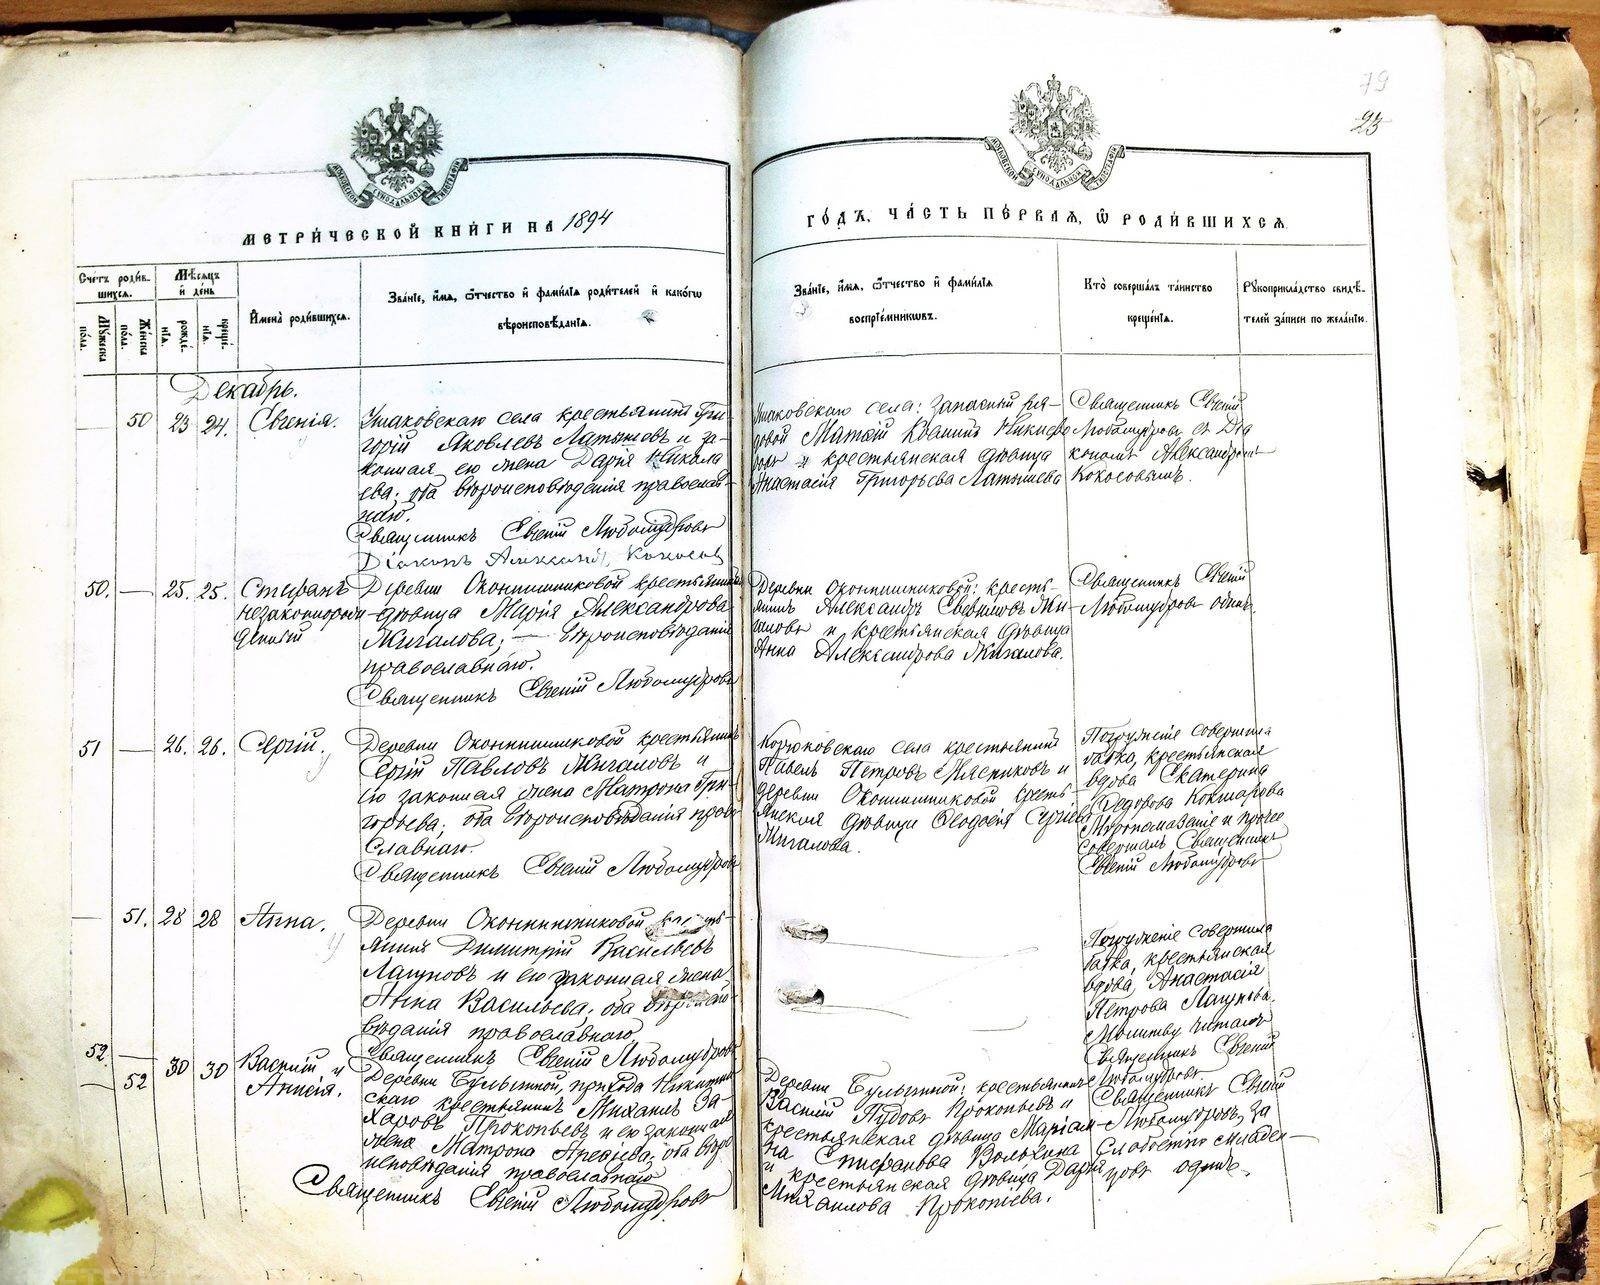 79
23
МОСКОВСКОЙ СУНОДАЛЬНОЙ ТИПОГРАФІИ
МОСКОВСКОЙ СУНОДАЛЬНОЙ ТИПОГРАФІИ
МЕТРИ́ЧЕСКОЙ КНИ́ГИ НА 1894
ГО́ДЪ, ЧА́СТЬ ПЕ́РВАЯ, Ѡ РОДИ́ВШИХСЯ
Сче́тъ роди́в-
шихся.
Му́жеска
по́ла.
Же́нска
по́ла.
Мѣ́сяцъ
и҆ де́нь
рожде́-
нїя.
креще́-
нїя.
И҆мена̀ роди́вшихся.
Зва́нїе, и҆́мя, ѻ҆́тчество и҆ фами́лїя роди́телей и҆ како́гѡ
вѣроисповѣ́данїя.
Зва́нїе, и҆́мя, ѻ҆́тчество и҆ фами́лїя
воспрїе́мникѡвъ.
Кто̀ соверша́лъ та́инство
креще́нїя.
Рꙋкоприкла́дство свидѣ́-
телей за́писи по жела́нїю.
Декабрь.
— 50 23 24. Евгенія.
Ушаковскаго села крестьянинъ Гри-
горій Яковлевъ Латышовъ и за-
конная его жена Дарія Никола
ева; оба вѣроисповѣданія православ-
наго.
Священникъ Евгеній Любомудровъ
Діаконъ Александръ Кокосов
Ушаковскаго села: запасный ря-
довой Матѳій Козминъ Никифо
ровъ и крестьянская дѣвица
Анастасія Григорьева Латышева
Священникъ Евгеній
Любомудровъ съ Діа
кономъ Александромъ
Кокосовымъ.
50. — 25. 25. Стефанъ
незаконнорож
денный
Деревни Оконишниковой крестьянская
дѣвица Марія Александрова
Жигалова; — вѣроисповѣданія
православнаго.
Священникъ Евгеній Любомудровъ
Деревни Оконишниковой: кресть-
янинъ Александръ Жи-
галовъ и крестьянская дѣвица
Анна Александрова Жигалова.
Священникъ Евгеній
Любомудровъ одинъ.
51 — 26. 26. Сергій.
Деревни Оконишниковой крестьянинъ
Сергій Павловъ Жигаловъ и
его законная жена Матрона Гри-
горьева; оба вѣроисповѣданія право
славнаго.
Священникъ Евгеній Любомудровъ
села крестьянинъ
Павелъ Петровъ Мясниковъ и
деревни Оконишниковой кресть-
янская дѣвица Ѳеодосія Сергіева
Жигалова.
Погруженіе совершила
бабка, крестьянская
вдова Екатерина
Ѳедорова Кокшарова
Мѵропомазаніе и прочее
совершалъ Священникъ
Евгеній Любомудровъ
— 51. 28 28 Анна.
Деревни Оконишниковой кресть-
янинъ Димитрій Васильевъ
Лагуновъ и его законная жена
Анна Васильева; оба вѣроиспо-
вѣданія православнаго
Священникъ Евгеній Любомудровъ
Погруженіе совершила
бабка, крестьянская
вдова, Анастасія
Петрова Лагунова.
Молитву читалъ
Священникъ Евгеній
Любомудровъ
52 —
— 52 30 30 Василій и
Анисія.
Деревни Булыгиной, прихода Никитин
скаго крестьянинъ Михаилъ За-
харовъ Прокопьевъ и его законная
жена Матрона; оба вѣро
исповѣданія православнаго
Священникъ Евгеній Любомудровъ
Деревни Булыгиной: крестьянинъ
Василій Прокопьевъ и
крестьянская дѣвица Маріам-
на Епифанова Волкина
и крестьянская дѣвица Дарія
Михаилова Прокопьева.
Священникъ Евгеній
Любомудровъ, за
слабостію младен-
цовъ одинъ.